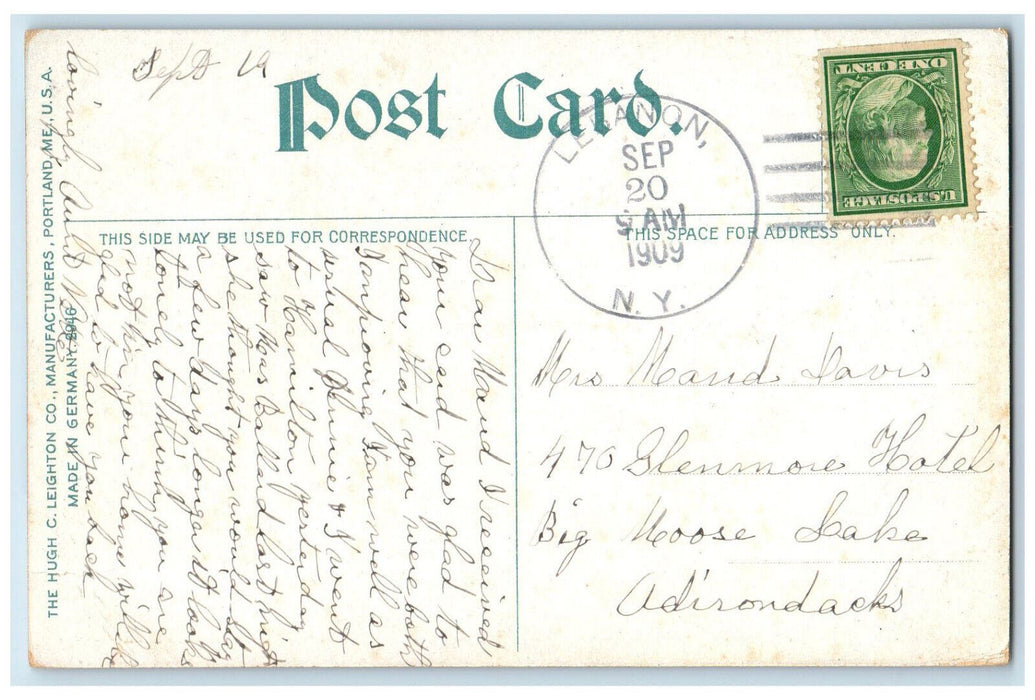 Sept 19
Post Card.
LEBANON,
SEP
20
9 AM
1909
N.Y.
ONE CENT
U.S. POSTAGE
THIS SIDE MAY BE USED FOR CORRESPONDENCE
THIS SPACE FOR ADDRESS ONLY.
Dear Maud I received
your card was glad to
hear that you were both
Improving I am well as
usual Jennie & I went
to Hamilton yesterday
saw Mrs Ballard last night
she thought you would stay
a few days longer it looks
lonely to think you are
not in your home will be
glad to have you back
lovingly Aunt
Mrs Maud Davis
470 Glenmore Hotel
Big Moose Lake
Adirondacks
THE HUGH C. LEIGHTON CO., MANUFACTURERS, PORTLAND, ME., U.S.A.
MADE IN GERMANY